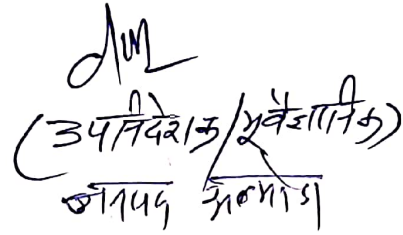 (उपनिदेशक/भूवैज्ञानिक)
जनपद अल्मोडा